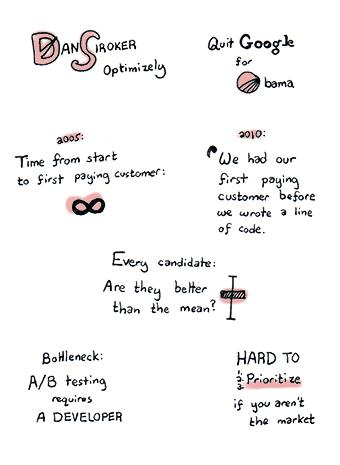 Dan Siroker
Optimizely
Quit Google
for
Obama
2005:
Time from start
to first paying customer:
∞
2010:
We had our
first paying
customer before
we wrote a line
of code.
Every candidate:
Are they better
than the mean?
Bottleneck:
A/B testing
requires
A DEVELOPER
HARD TO
1
2
3
Prioritize
if you aren't
the market